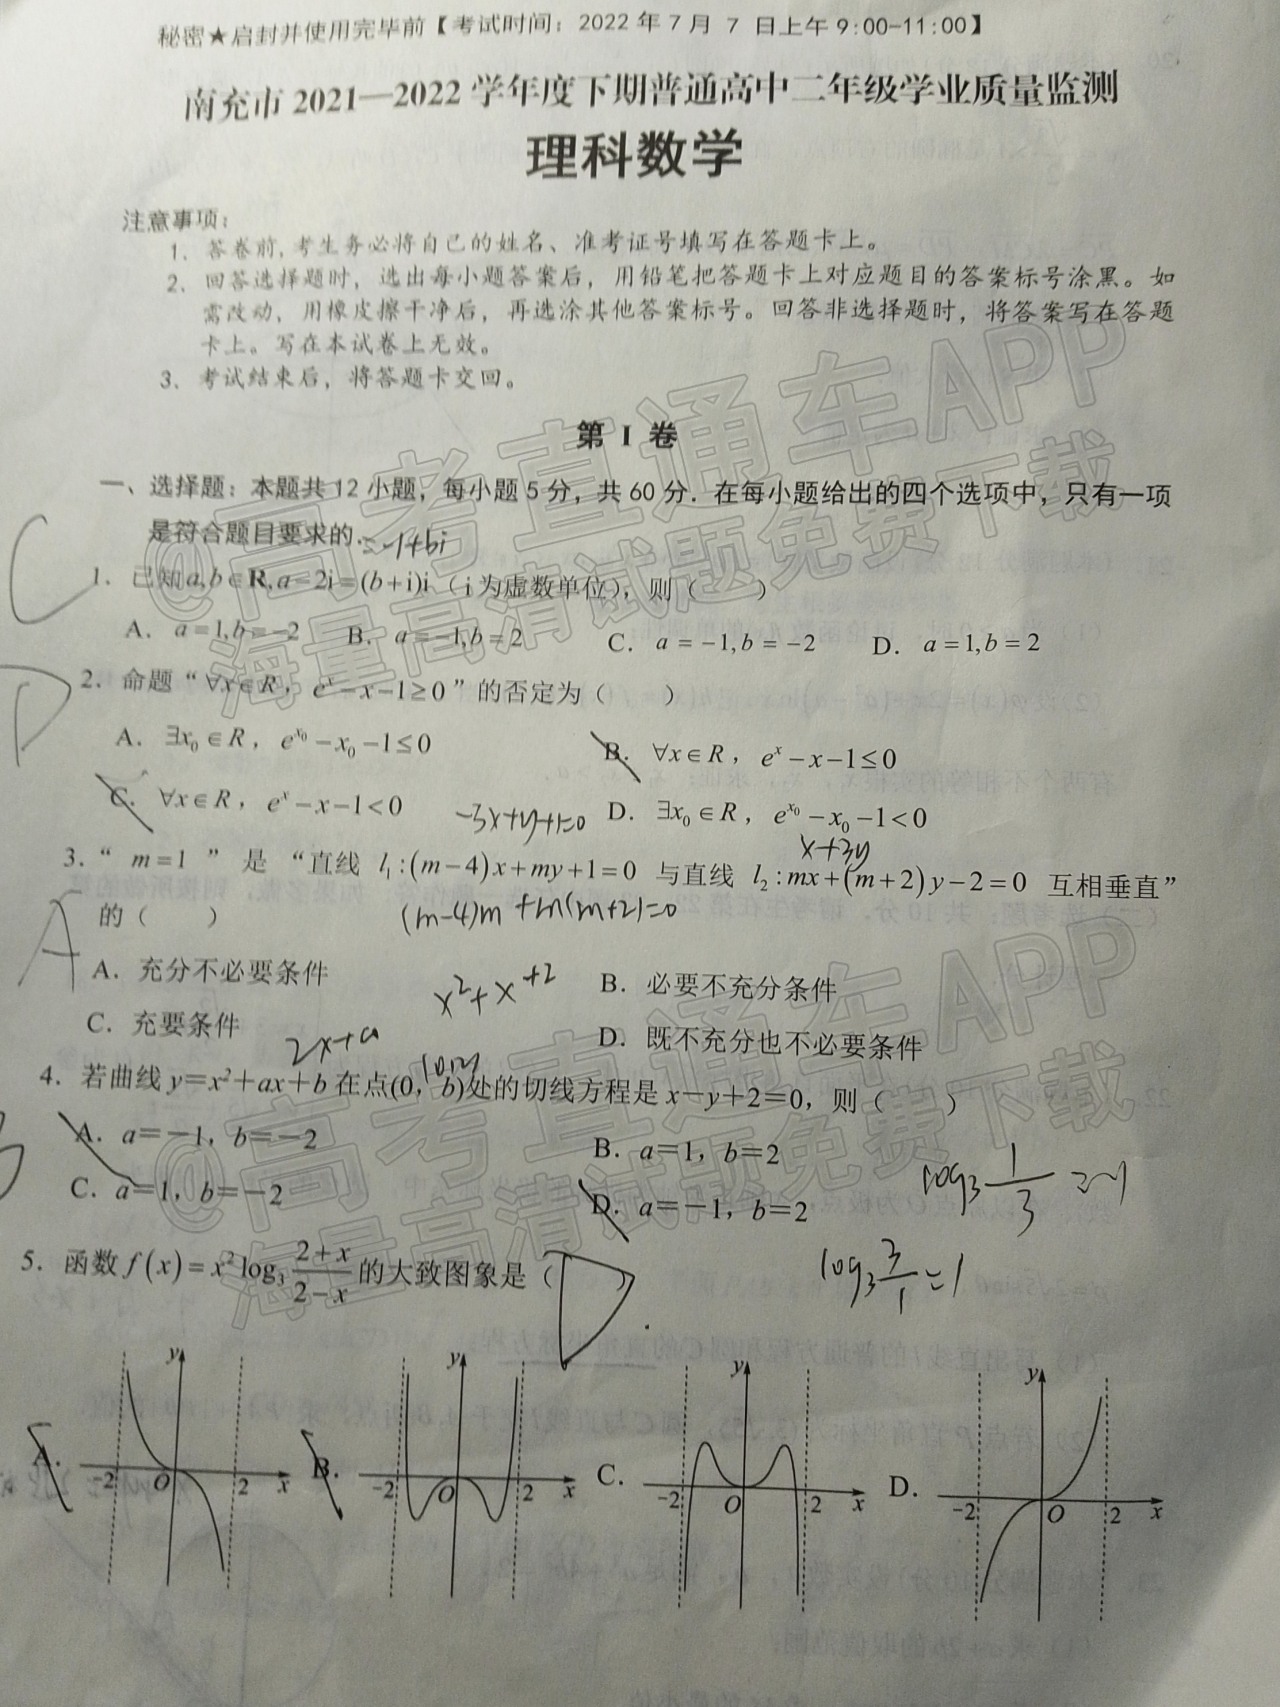 秘密★启封并使用完毕前【考试时间：2022年7月7日上午9:00-11:00】
南充市2021—2022学年度下期普通高中二年级学业质量监测
理科数学
注意事项：
1．答卷前,考生务必将自己的姓名、准考证号填写在答题卡上。
2．回答选择题时，选出每小题答案后，用铅笔把答题卡上对应题目的答案标号涂黑。如
需改动，用橡皮擦干净后，再选涂其他答案标号。回答非选择题时，将答案写在答题
卡上。写在本试卷上无效。
3．考试结束后，将答题卡交回。
第 I 卷
一、选择题：本题共12小题，每小题5分，共60分．在每小题给出的四个选项中，只有一项
是符合题目要求的．
=-1+bi
C
1．已知a,b∈R,a-2i=(b+i)i（i为虚数单位），则（　　）
A．a=1,b=-2　B．a=-1,b=2　C．a=-1,b=-2　D．a=1,b=2
D
2．命题“∀x∈R，eˣ-x-1≥0”的否定为（　　）
A．∃x₀∈R，e^{x₀}-x₀-1≤0　B．∀x∈R，eˣ-x-1≤0
C．∀x∈R，eˣ-x-1<0　D．∃x₀∈R，e^{x₀}-x₀-1<0
-3x+y+1=0
x+3y
3．“ m=1 ”是“直线 l₁:(m-4)x+my+1=0 与直线 l₂:mx+(m+2)y-2=0 互相垂直”
的（　　）
(m-4)m+m(m+2)=0
A
A．充分不必要条件　B．必要不充分条件
x²+x+2
C．充要条件　D．既不充分也不必要条件
2x+a
(0,2)
4．若曲线y=x²+ax+b在点(0，b)处的切线方程是x-y+2=0，则（　　）
A．a=-1，b=-2　B．a=1，b=2
B
C．a=1，b=-2　D．a=-1，b=2
log₃ 1/3 =-1
5．函数f(x)=x²log₃ (2+x)/(2-x) 的大致图象是（　　）
D
log₃ 3/1 =1
A．　y　-2　O　2　x　B．　y　-2　O　2　x　C．　y　-2　O　2　x　D．　y　-2　O　2　x
@高考直通车APP
海量高清试题免费下载
@高考直通车APP
海量高清试题免费下载